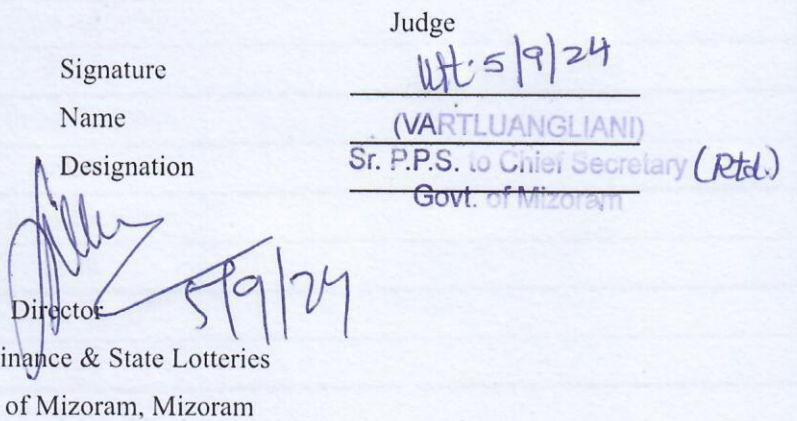 Judge
Signature 5/9/24
Name (VARTLUANGLIANI)
Designation Sr. P.P.S. to Chief Secretary (Rtd.)
Govt. of Mizoram
5/9/24
Director
inance & State Lotteries
of Mizoram, Mizoram